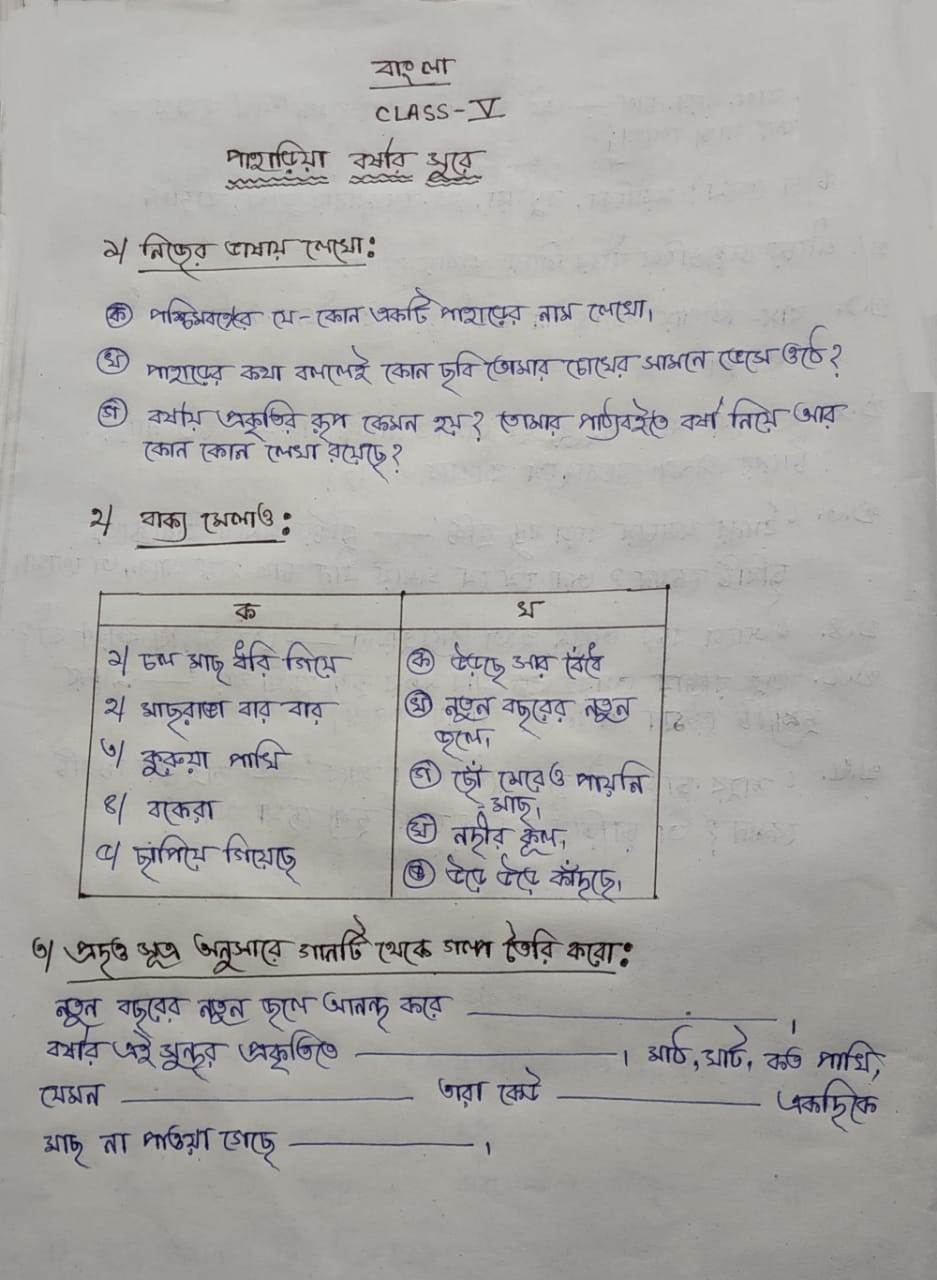 বাংলা
CLASS-V
পাহাড়িয়া বর্ষার সুরে
১/ নিজের ভাষায় লেখো:
ক পশ্চিমবঙ্গের যে-কোন একটি পাহাড়ের নাম লেখো।
খ পাহাড়ের কথা বললেই কোন ছবি তোমার চোখের সামনে ভেসে ওঠে?
গ বর্ষায় প্রকৃতির রূপ কেমন হয়? তোমার পাঠ্যবইতে বর্ষা নিয়ে আর
কোন কোন লেখা রয়েছে?
২/ বাক্য মেলাও:
ক খ
১/ চল মাছ ধরি গিয়ে ক উড়ছে সার বেঁধে
২/ মাছরাঙা বার বার খ নতুন বছরের নতুন
জলে।
৩/ কুরুয়া পাখি গ ছোঁ মেরেও পায়নি
মাছ।
৪/ বকেরা ঘ নদীর কূল।
৫/ ছাপিয়ে গিয়েছে ঙ উড়ে উড়ে কাঁদছে।
৩/ প্রদত্ত সূত্র অনুসারে গানটি থেকে গল্প তৈরি করো:
নতুন বছরের নতুন জলে আনন্দ করে ———।
বর্ষার এই সুন্দর প্রকৃতিতে ———। মাঠ, ঘাট, কত পাখি,
যেমন ——— তারা কেউ ——— একদিকে
মাছ না পাওয়া গেছে ———।